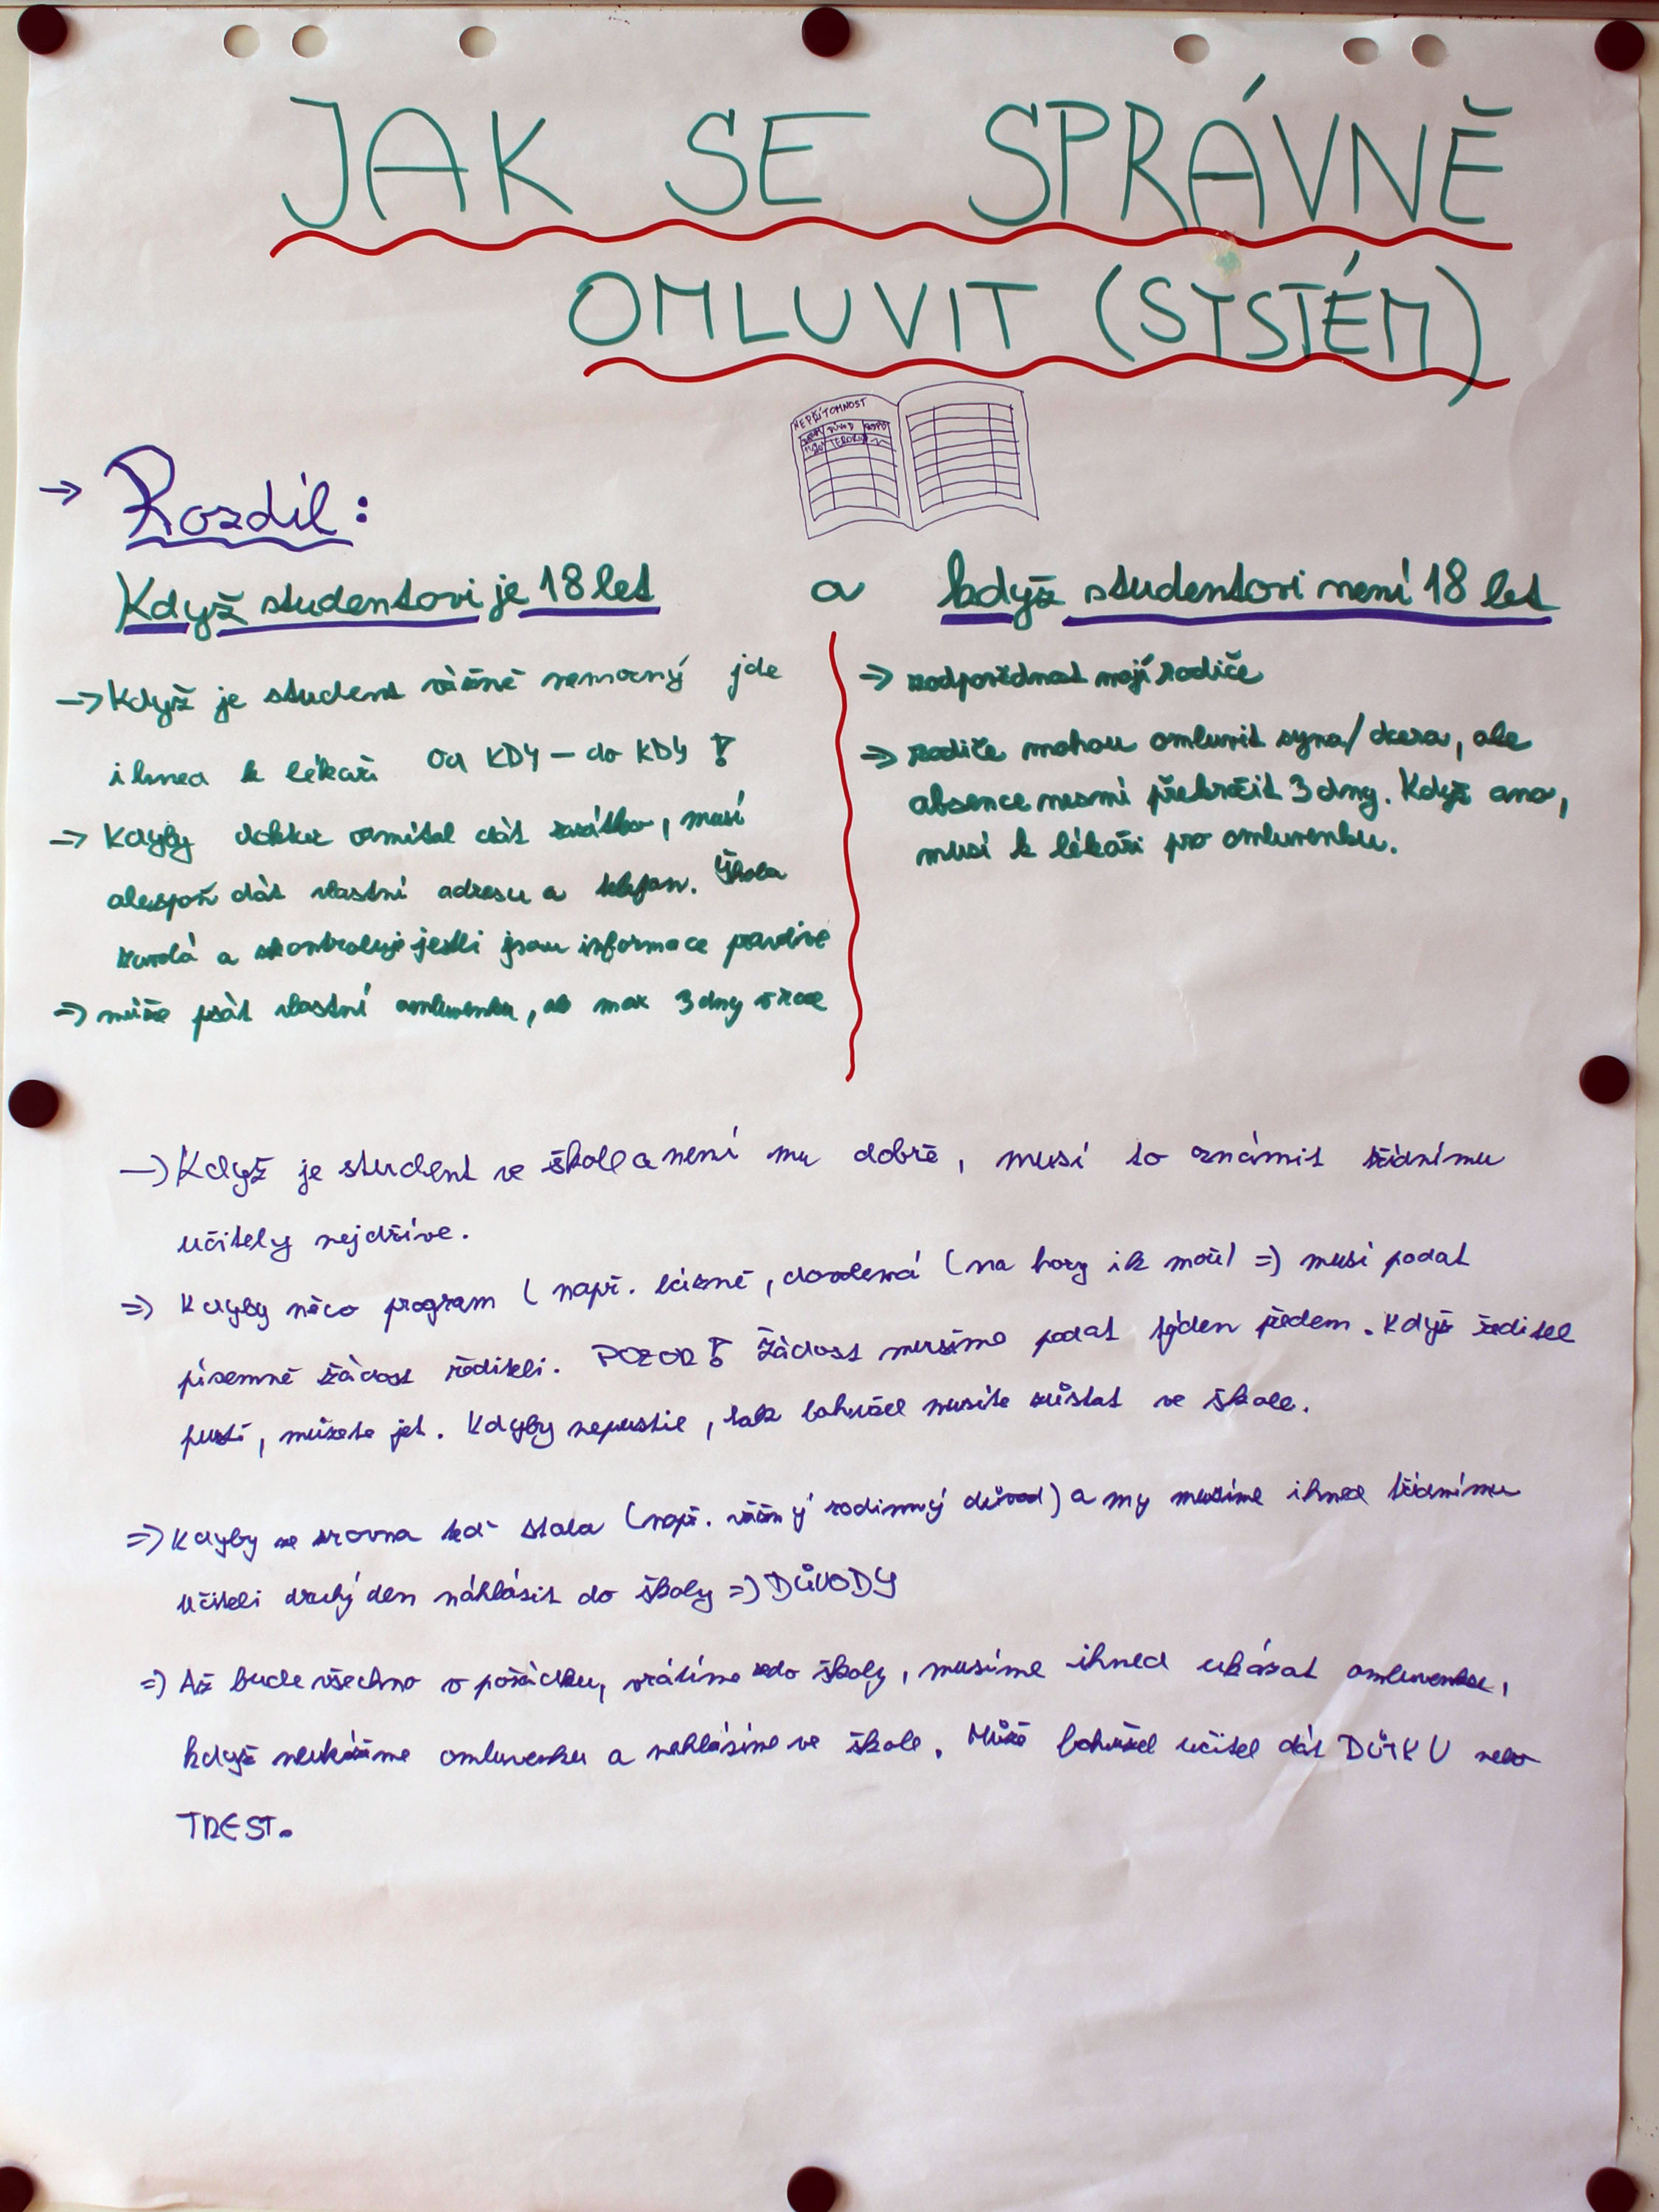 JAK SE SPRÁVNĚ
OMLUVIT (SYSTÉM)
NEPŘÍTOMNOST
DŮVOD
→ Rozdíl:
Když studentovi je 18 let a když studentovi není 18 let
→ Když je student vážně nemocný jde
ihned k lékaři Od KDY – do KDY !
⇒ Kdyby doktor odmítal dát zprátko, musí
alespoň dát vlastní adresu a telefon. Škola
zavolá a skontroluje jestli jsou informace pravdivé
⇒ může psát vlastní omluvenku, ale max 3 dny
⇒ zodpovědnost mají rodiče
⇒ rodiče mohou omluvit syna/dcera, ale
absence nesmí překročit 3 dny. Když ano,
musí k lékaři pro omluvenku.
→ Když je student ve škole a není mu dobře, musí to oznámit třídnímu
učitely nejdříve.
⇒ Kdyby něco program (např. lázně, dovolená (na hory i k moři) ⇒ musí podat
písemně žádost řediteli. POZOR! Žádost musíme podat týden předem. Když ředitel
pustí, můžete jet. Kdyby nepustil, tak bohužel musíte zůstat ve škole.
⇒ Kdyby se zrovna teď stala (např. vážný rodinný důvod) a my musíme ihned třídnímu
učiteli druhý den nahlásit do školy ⇒ DŮVODY
⇒ Až bude všechno v pořádku, vrátíme do školy, musíme ihned ukázat omluvenku,
když neukážeme omluvenku a nahlásíme ve škole. Může bohužel učitel dát DŮTKU nebo
TREST.